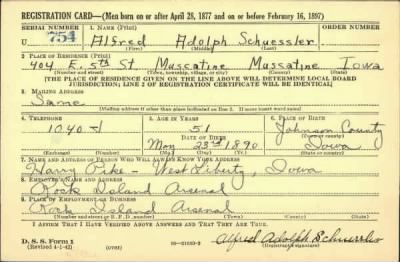 REGISTRATION CARD—(Men born on or after April 28, 1877 and on or before February 16, 1897)
SERIAL NUMBER 1. NAME (Print) ORDER NUMBER
754 Alfred Adolph Schuessler
(First) (Middle) (Last)
2. PLACE OF RESIDENCE (Print)
404 E. 5th St. Muscatine Muscatine Iowa
(Number and street) (Town, township, village, or city) (County) (State)
[THE PLACE OF RESIDENCE GIVEN ON THE LINE ABOVE WILL DETERMINE LOCAL BOARD
JURISDICTION; LINE 2 OF REGISTRATION CERTIFICATE WILL BE IDENTICAL]
3. MAILING ADDRESS
Same
[Mailing address if other than place indicated on line 2. If same insert word same]
4. TELEPHONE 5. AGE IN YEARS 6. PLACE OF BIRTH
1040-J 51 Johnson County
DATE OF BIRTH (Town or county)
23rd 1890 Iowa
(Exchange) (Number) (Mo.) (Day) (Yr.) (State or country)
7. NAME AND ADDRESS OF PERSON WHO WILL ALWAYS KNOW YOUR ADDRESS
Harry Pike - West Liberty, Iowa
8. EMPLOYER'S NAME AND ADDRESS
Rock Island Arsenal
9. PLACE OF EMPLOYMENT OR BUSINESS
Rock Island Arsenal
(Number and street or R. F. D. number) (Town) (County) (State)
I AFFIRM THAT I HAVE VERIFIED ABOVE ANSWERS AND THAT THEY ARE TRUE.
D. S. S. Form 1 Alfred Adolph Schuessler
(Revised 4-1-42) (over) (Registrant's signature)